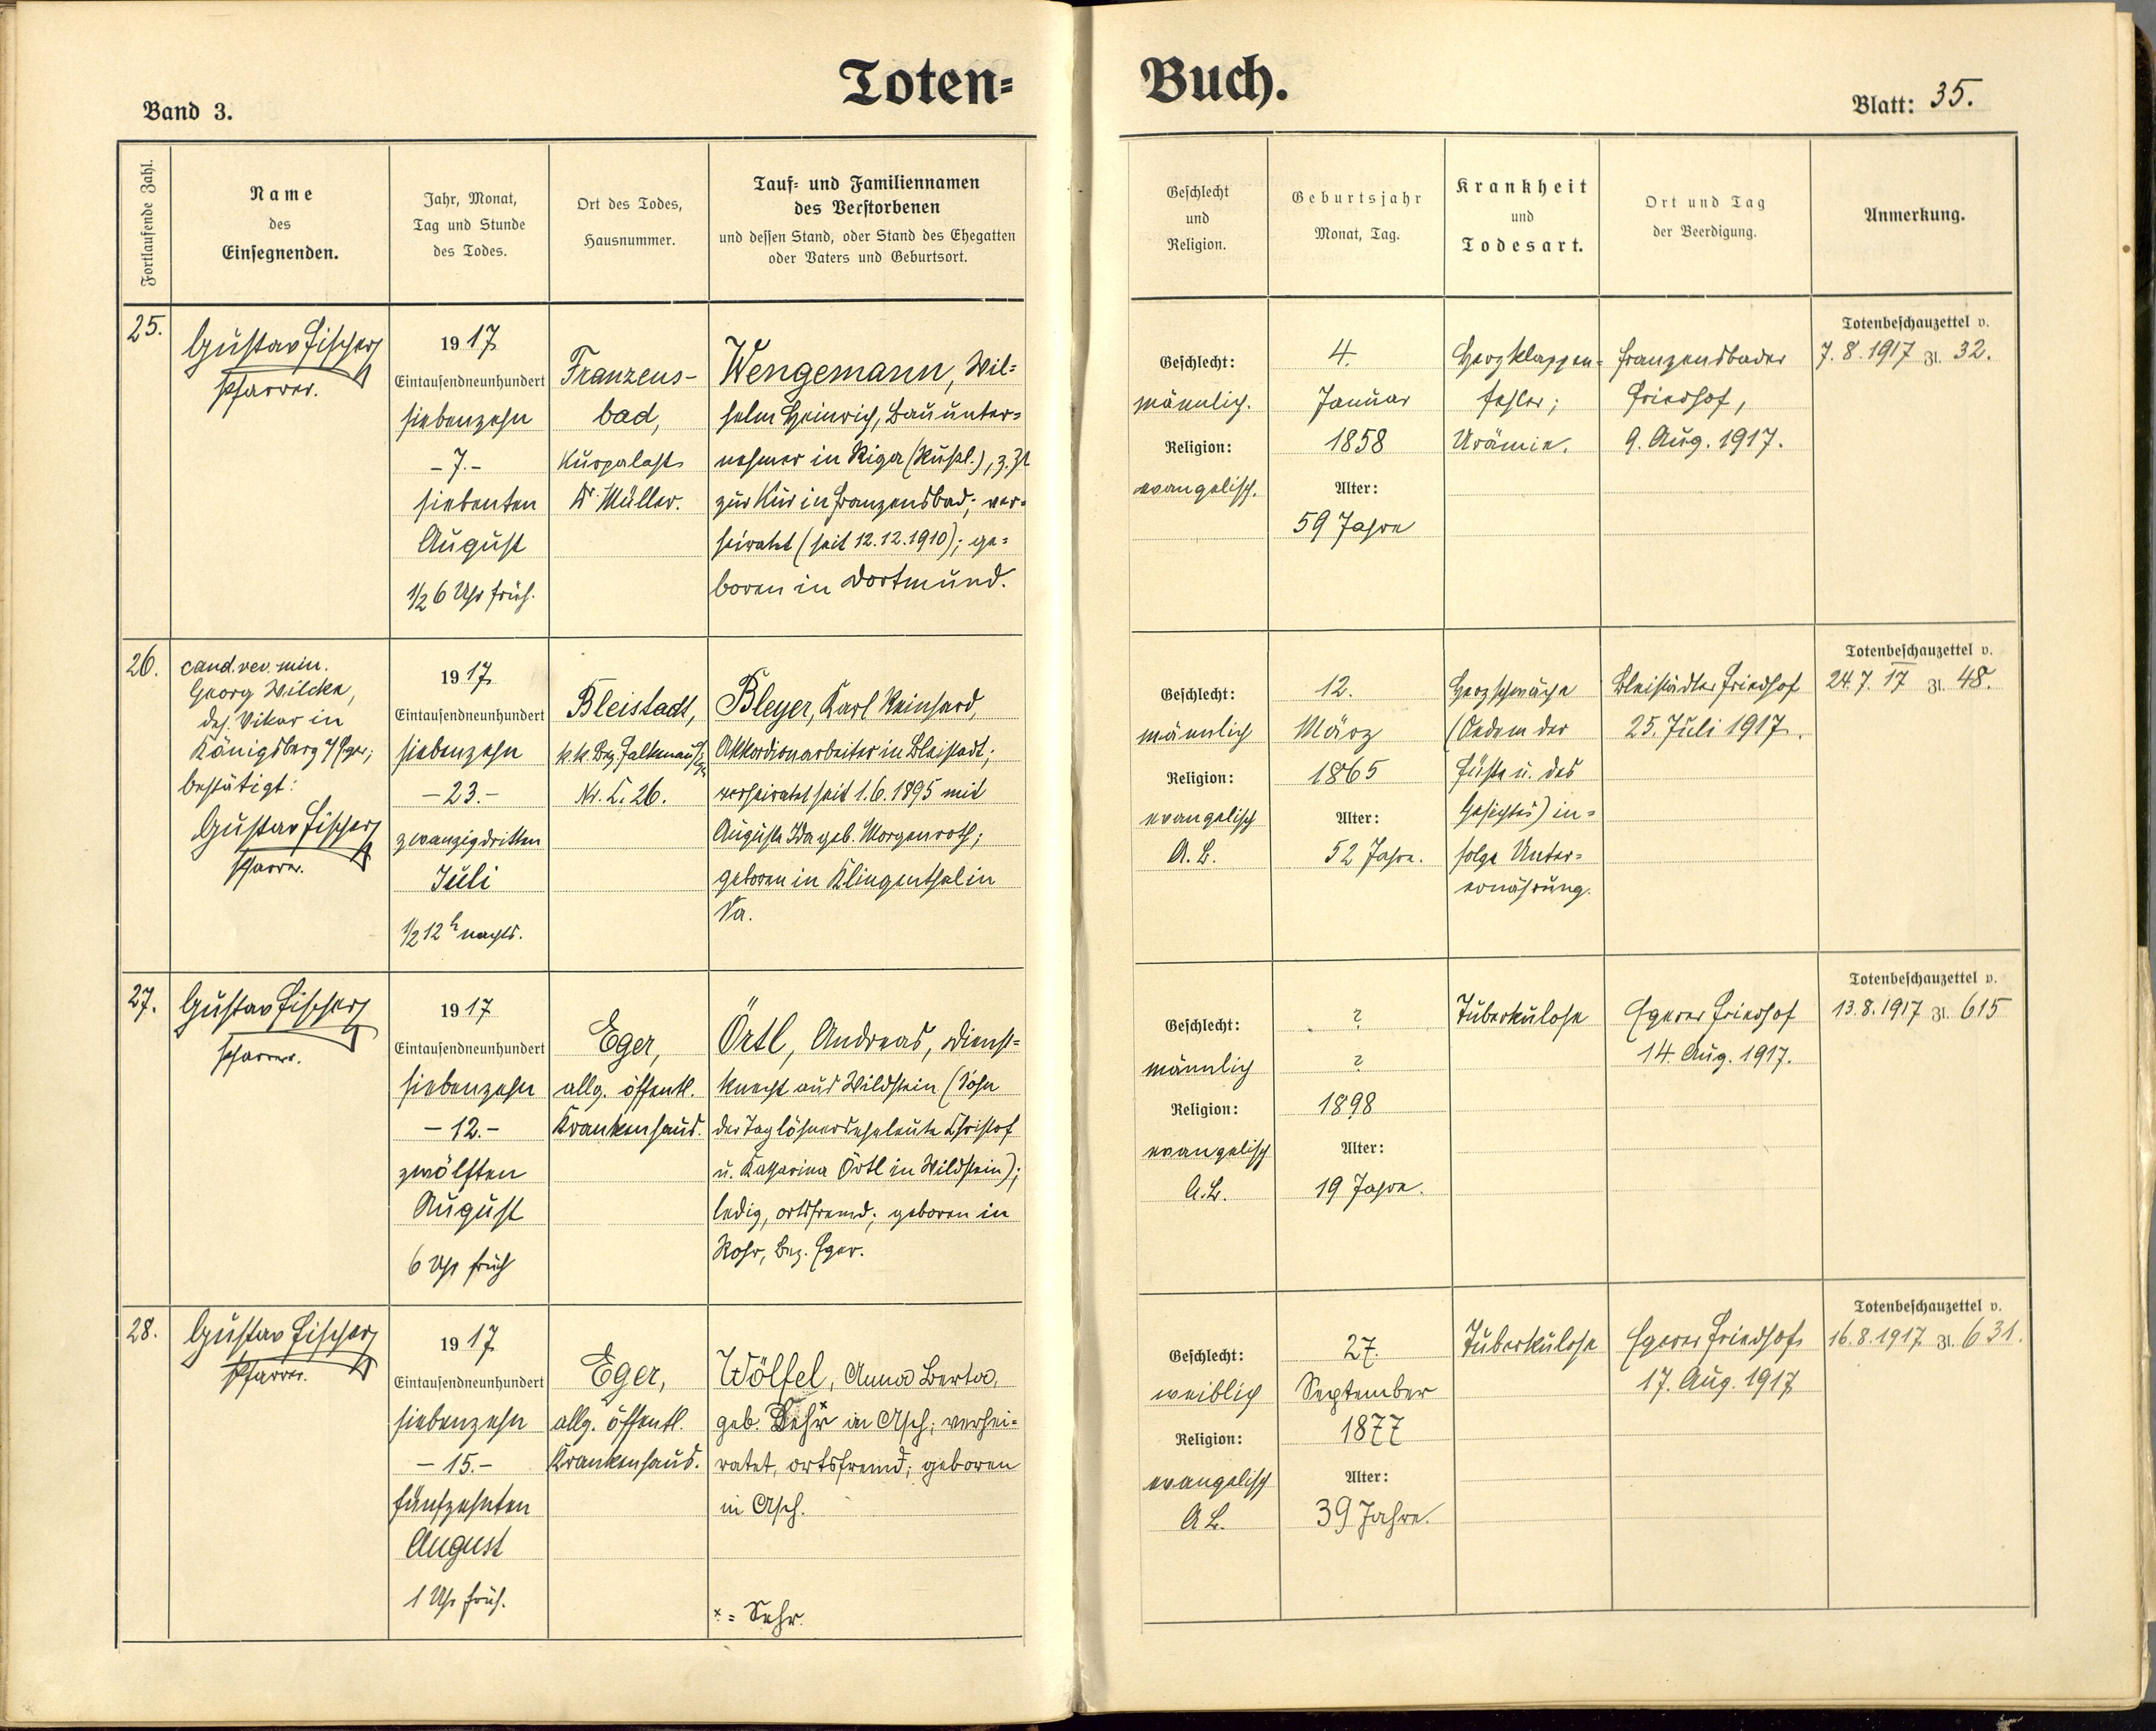 Toten=
Buch.
Band 3.
Blatt: 35.
Fortlaufende Zahl.
Name
des
Einsegnenden.
Jahr, Monat,
Tag und Stunde
des Todes.
Ort des Todes,
Hausnummer.
Tauf= und Familiennamen
des Verstorbenen
und dessen Stand, oder Stand des Ehegatten
oder Vaters und Geburtsort.
Geschlecht
und
Religion.
Geburtsjahr
Monat, Tag.
Krankheit
und
Todesart.
Ort und Tag
der Beerdigung.
Anmerkung.
25.
Gustav Fischer
Pfarrer.
1917
Eintausendneunhundert
siebenzehn
-7.-
siebenten
August
1/2 6 Uhr früh.
Franzens-
bad,
Kurpalast
Dr Müller.
Wengemann, Wil=
helm Heinrich, Bauunter=
nehmer in Riga (Rußl.), z. Zt
zur Kur in Franzensbad; ver=
heiratet (seit 12.12.1910); ge=
boren in Dortmund.
Geschlecht:
männlich.
Religion:
evangelisch.
4.
Januar
1858
Alter:
59 Jahre
Herzklappen=
fehler;
Urämie.
Franzensbader
Friedhof,
9. Aug. 1917.
Totenbeschauzettel v.
7.8.1917 Zl. 32.
26.
cand. rev. min.
Georg Wilcke,
dz. Vikar in
Königsberg a/Eger;
bestätigt:
Gustav Fischer
Pfarrer.
1917
Eintausendneunhundert
siebenzehn
-23.-
zwanzigdritten
Juli
1/2 12 h nachts.
Bleistadt,
k.k. Bez. Falkenau a/Eger
Nr. C. 26.
Bleyer, Karl Reinhard,
Akkordionarbeiter in Bleistadt;
verheiratet seit 1.6.1895 mit
Auguste Ida geb. Morgenroth;
geboren in Klingenthal in
Sa.
Geschlecht:
männlich
Religion:
evangelisch
A. B.
12.
März
1865
Alter:
52 Jahre.
Herzschwäche
(Oedem der
Füße u. des
Gesichtes) in=
folge Unter=
ernährung.
Bleistädter Friedhof
25. Juli 1917.
Totenbeschauzettel v.
24.7.17 Zl. 48.
27.
Gustav Fischer
Pfarrer.
1917
Eintausendneunhundert
siebenzehn
-12.-
zwölften
August
6 Uhr früh
Eger,
allg. öffentl.
Krankenhaus.
Örtl, Andreas, Dienst=
knecht aus Wildstein (Sohn
der Taglöhnerseheleute Christof
u. Katharina Örtl in Wildstein);
ledig, ortsfremd; geboren in
Rohr, Bez. Eger.
Geschlecht:
männlich
Religion:
evangelisch
A.B.
?
?
1898
Alter:
19 Jahre.
Tuberkulose
Egerer Friedhof
14. Aug. 1917.
Totenbeschauzettel v.
13.8.1917 Zl. 615
28.
Gustav Fischer
Pfarrer.
1917
Eintausendneunhundert
siebenzehn
-15.-
fünfzehnten
August
1 Uhr früh.
Eger,
allg. öffentl.
Krankenhaus.
Wölfel, Anna Berta,
geb. x in Asch; verhei=
ratet, ortsfremd; geboren
in Asch.
x = Sehr.
Geschlecht:
weiblich
Religion:
evangelisch
A B.
27.
September
1877
Alter:
39 Jahre.
Tuberkulose
Egerer Friedhof
17. Aug. 1917
Totenbeschauzettel v.
16.8.1917 Zl. 631.